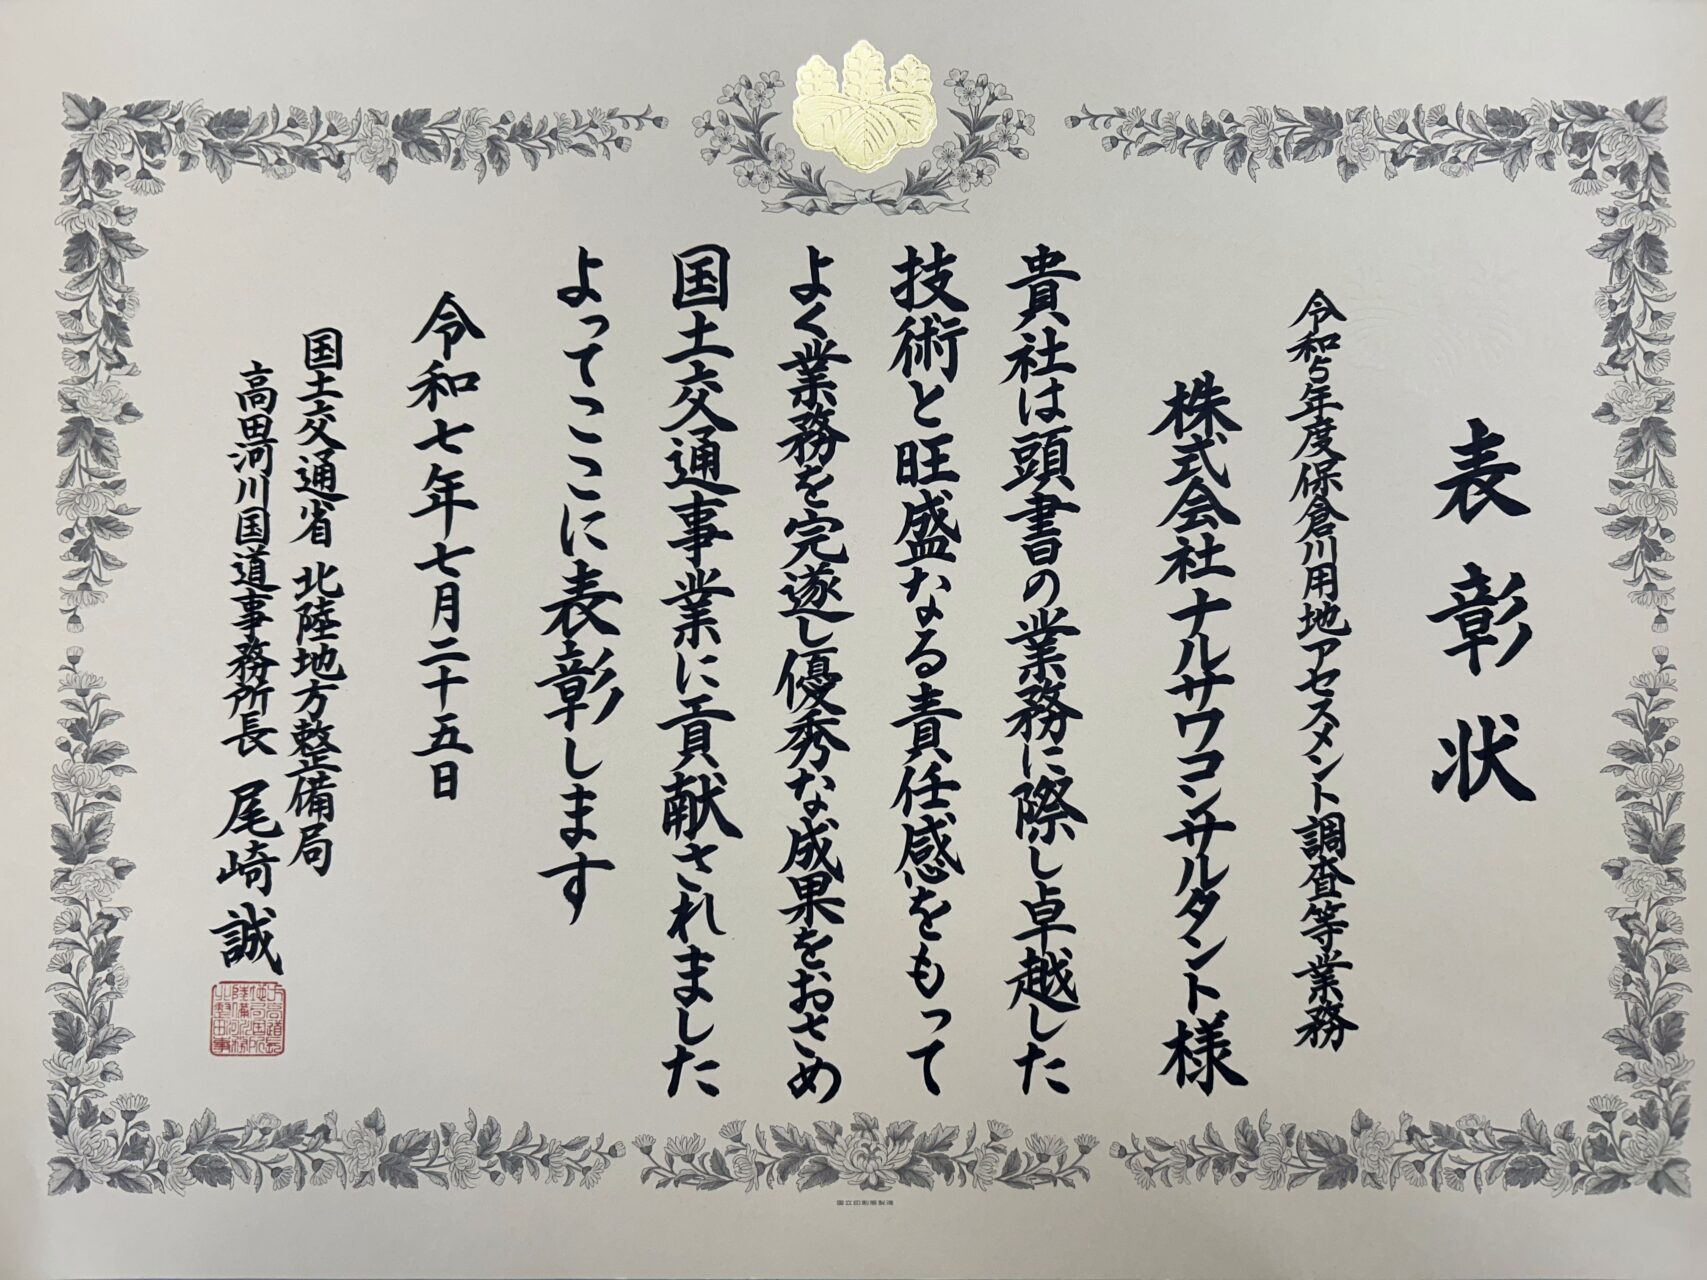 表彰状
令和5年度保倉川用地アセスメント調査等業務
株式会社ナルサワコンサルタント様
貴社は頭書の業務に際し卓越した
技術と旺盛なる責任感をもって
よく業務を完遂し優秀な成果をおさめ
国土交通事業に貢献されました
よってここに表彰します
令和七年七月二十五日
国土交通省 北陸地方整備局
高田河川国道事務所長 尾崎 誠
国立印刷局製造